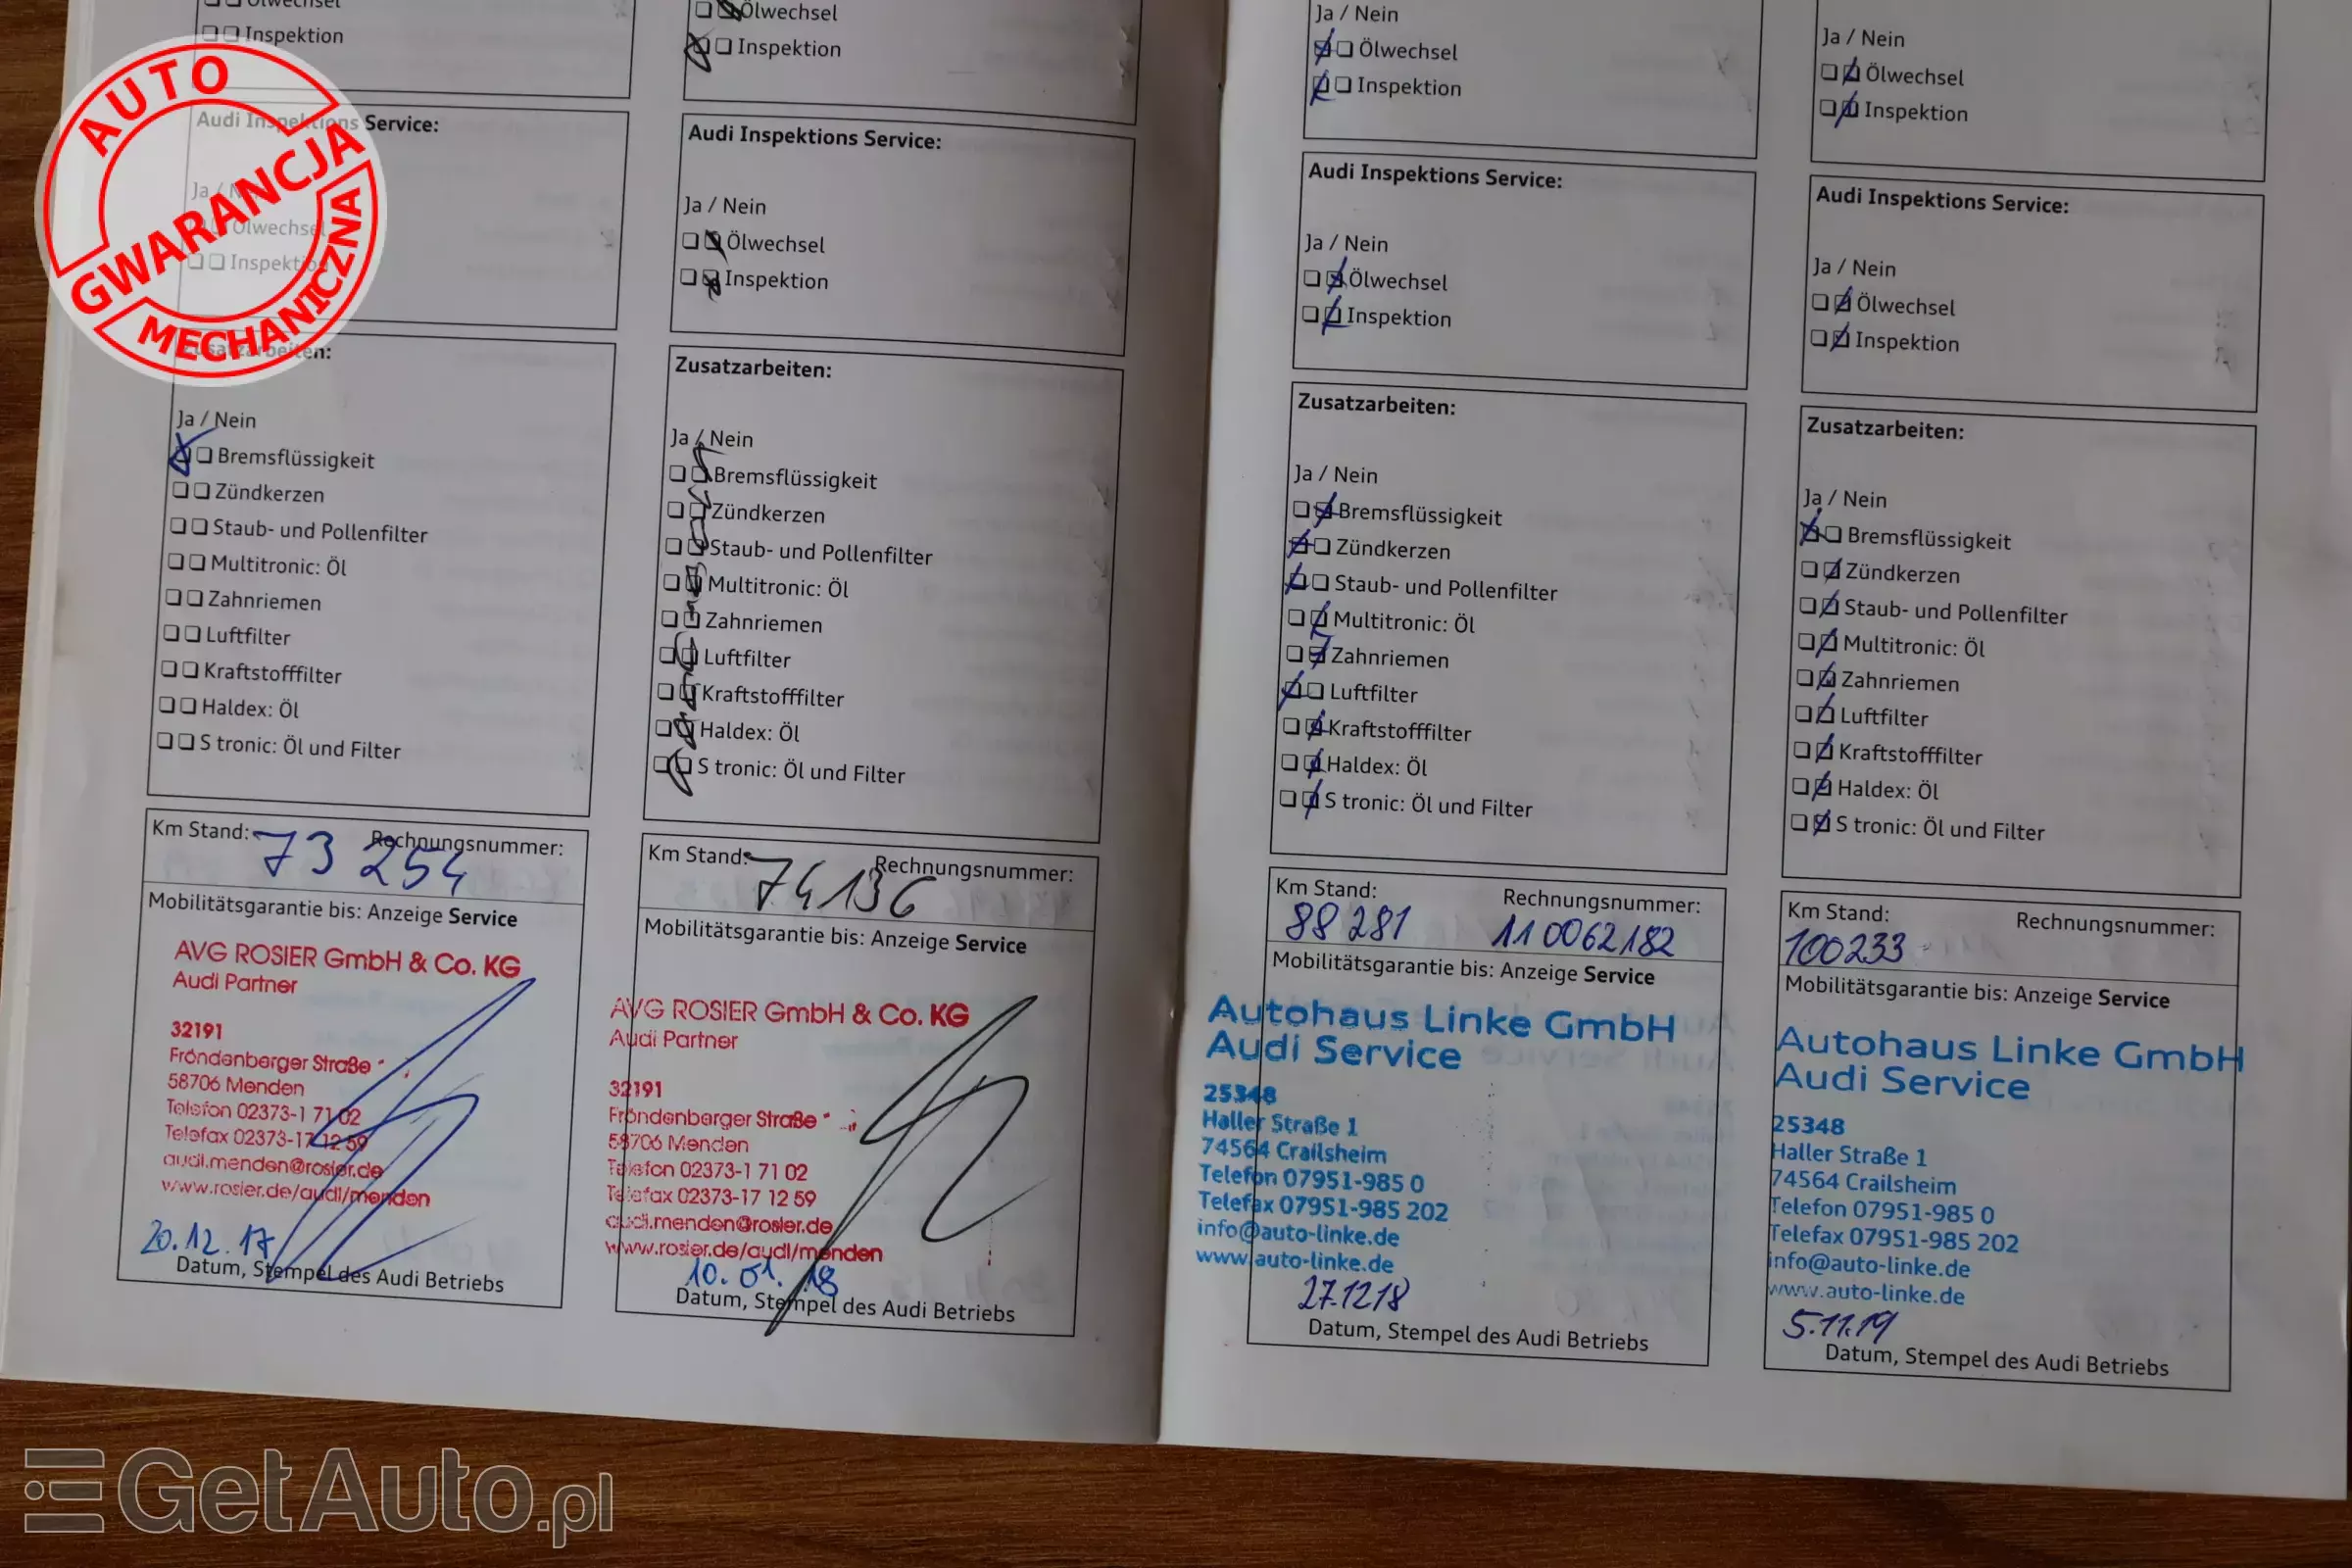 AUTO
GWARANCJA
MECHANICZNA
Ölwechsel
Inspektion
Audi Inspektions Service:
Ja / Nein
Ölwechsel
Inspektion
Zusatzarbeiten:
Ja / Nein
Bremsflüssigkeit
Zündkerzen
Staub- und Pollenfilter
Multitronic: Öl
Zahnriemen
Luftfilter
Kraftstofffilter
Haldex: Öl
S tronic: Öl und Filter
Km Stand: 73 254 Rechnungsnummer:
Mobilitätsgarantie bis: Anzeige Service
AVG ROSIER GmbH & Co. KG
Audi Partner
32191
Fröndenberger Straße
58706 Menden
Telefon 02373-1 71 02
Telefax 02373-17 12 59
audi.menden@rosier.de
www.rosier.de/audi/menden
20.12.17
Datum, Stempel des Audi Betriebs
Ölwechsel
Inspektion
Audi Inspektions Service:
Ja / Nein
Ölwechsel
Inspektion
Zusatzarbeiten:
Ja / Nein
Bremsflüssigkeit
Zündkerzen
Staub- und Pollenfilter
Multitronic: Öl
Zahnriemen
Luftfilter
Kraftstofffilter
Haldex: Öl
S tronic: Öl und Filter
Km Stand: 74136 Rechnungsnummer:
Mobilitätsgarantie bis: Anzeige Service
AVG ROSIER GmbH & Co. KG
Audi Partner
32191
Fröndenberger Straße
58706 Menden
Telefon 02373-1 71 02
Telefax 02373-17 12 59
audi.menden@rosier.de
www.rosier.de/audi/menden
10.01.18
Datum, Stempel des Audi Betriebs
Ja / Nein
Ölwechsel
Inspektion
Audi Inspektions Service:
Ja / Nein
Ölwechsel
Inspektion
Zusatzarbeiten:
Ja / Nein
Bremsflüssigkeit
Zündkerzen
Staub- und Pollenfilter
Multitronic: Öl
Zahnriemen
Luftfilter
Kraftstofffilter
Haldex: Öl
S tronic: Öl und Filter
Km Stand: Rechnungsnummer:
88 281 110062182
Mobilitätsgarantie bis: Anzeige Service
Autohaus Linke GmbH
Audi Service
25348
Haller Straße 1
74564 Crailsheim
Telefon 07951-985 0
Telefax 07951-985 202
info@auto-linke.de
www.auto-linke.de
27.12.18
Datum, Stempel des Audi Betriebs
Ja / Nein
Ölwechsel
Inspektion
Audi Inspektions Service:
Ja / Nein
Ölwechsel
Inspektion
Zusatzarbeiten:
Ja / Nein
Bremsflüssigkeit
Zündkerzen
Staub- und Pollenfilter
Multitronic: Öl
Zahnriemen
Luftfilter
Kraftstofffilter
Haldex: Öl
S tronic: Öl und Filter
Km Stand: Rechnungsnummer:
100233
Mobilitätsgarantie bis: Anzeige Service
Autohaus Linke GmbH
Audi Service
25348
Haller Straße 1
74564 Crailsheim
Telefon 07951-985 0
Telefax 07951-985 202
info@auto-linke.de
www.auto-linke.de
5.11.19
Datum, Stempel des Audi Betriebs
GetAuto.pl